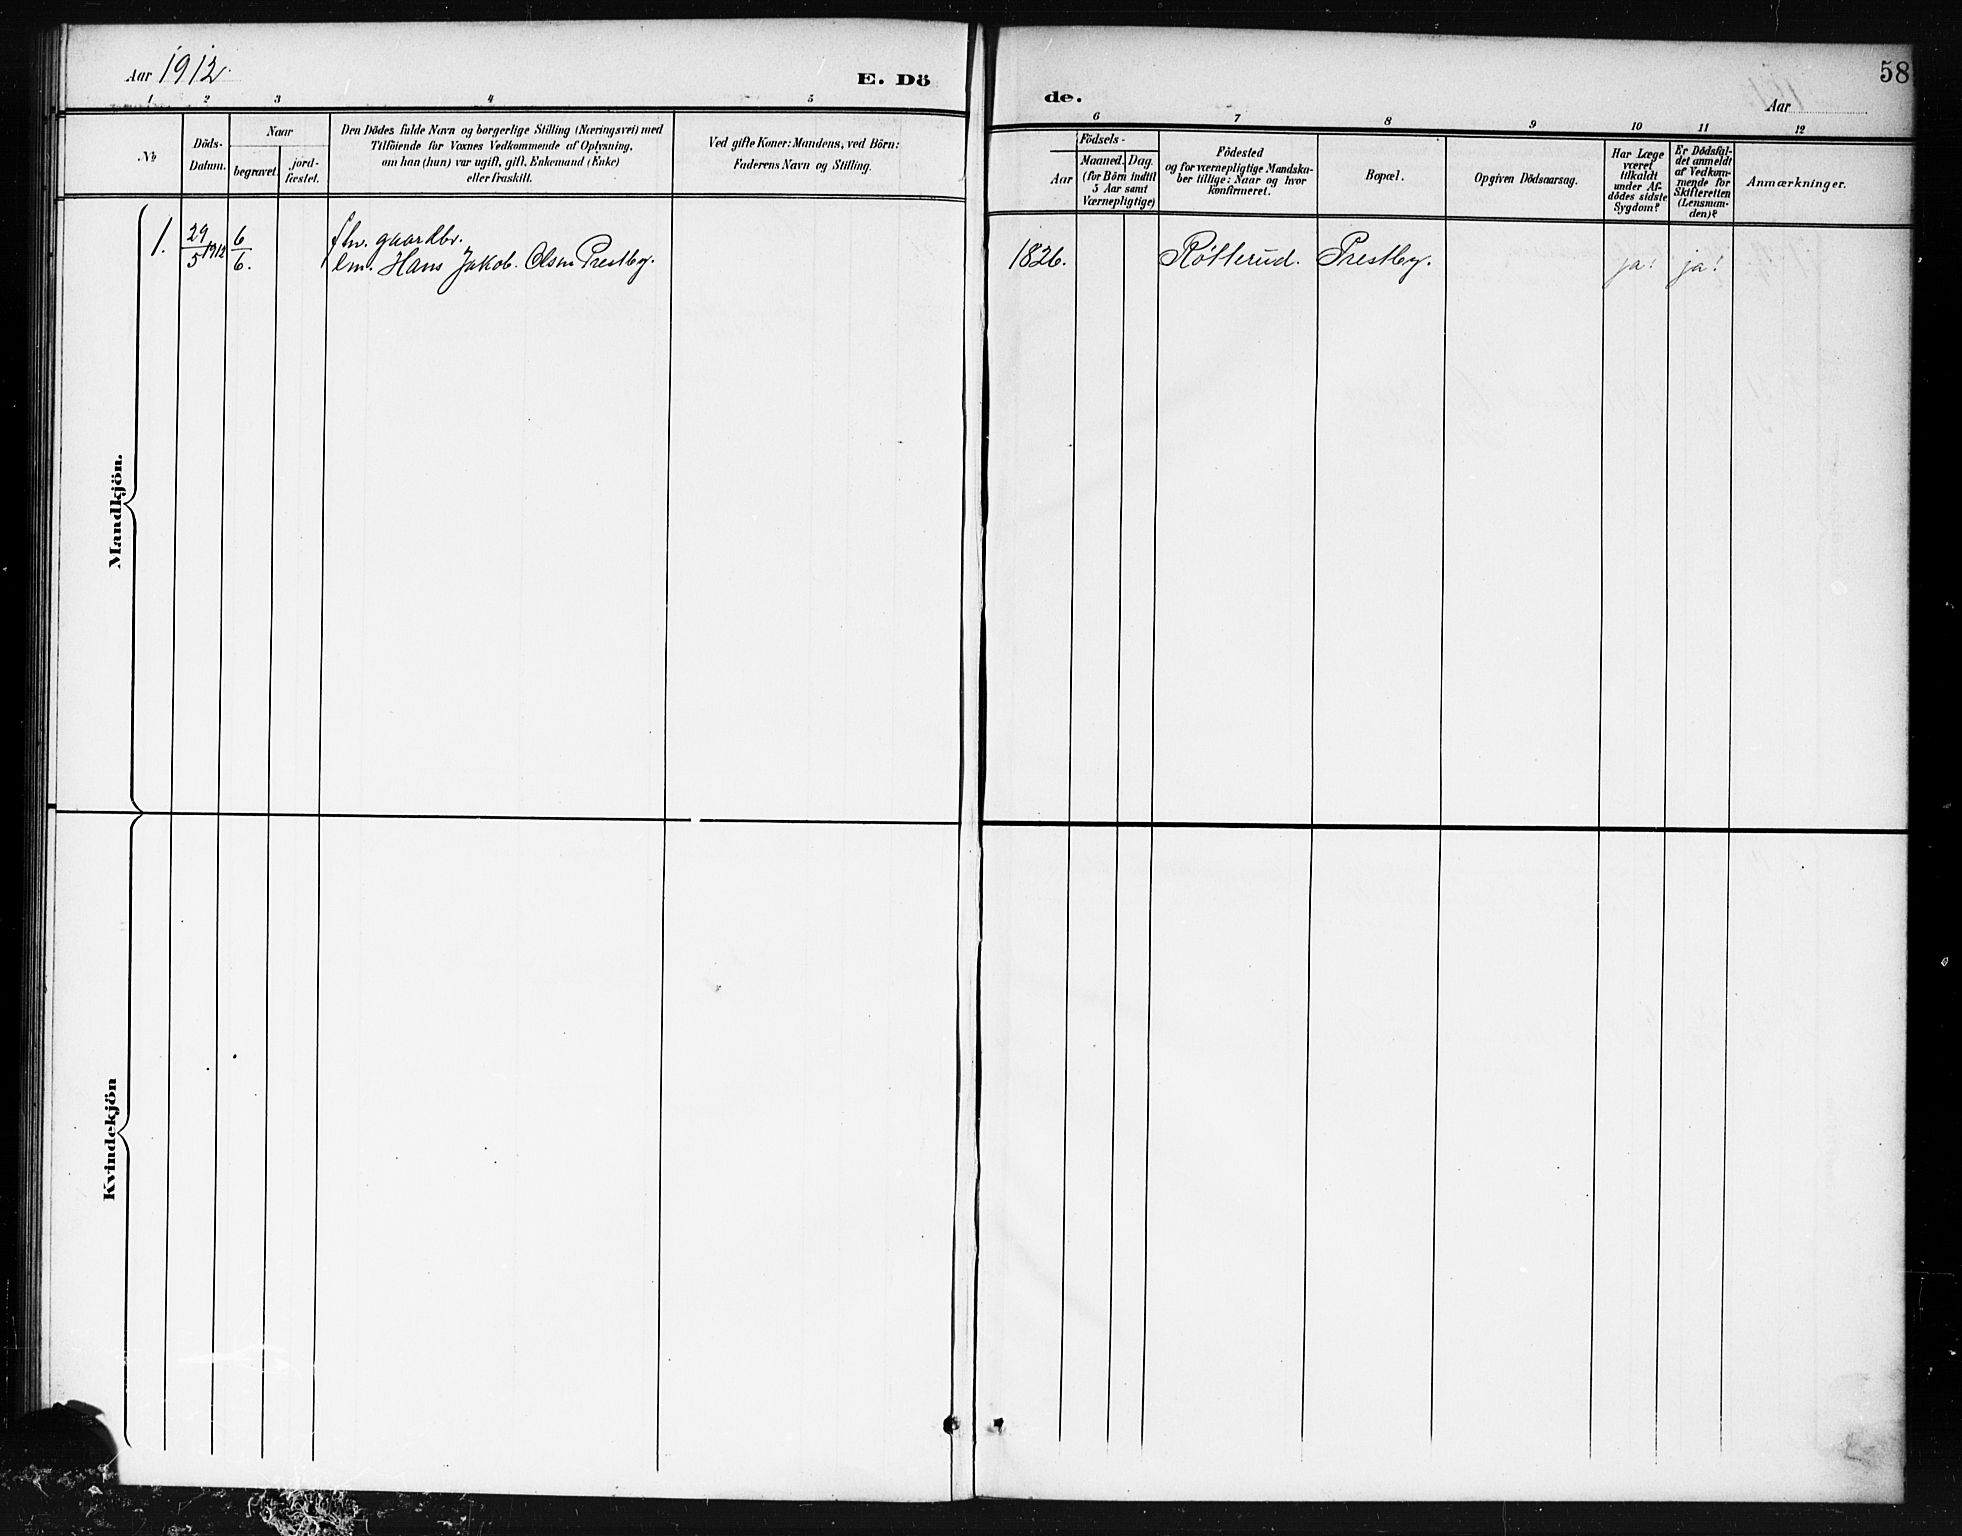 Aar 1912.
E. Dö
1 2 3 4 5
№
Döds-
Datum.
Naar
begravet.
jord-
fæstet.
Den Dödes fulde Navn og borgerlige Stilling (Næringsvei) med
Tilföiende for Voxnes Vedkommende af Oplysning,
om han (hun) var ugift, gift, Enkemand (Enke)
eller fraskilt.
Ved gifte Koner: Mandens, ved Börn:
Faderens Navn og Stilling.
Mandkjön.
1.
29/5 1912
6/6.
fhv. gaardbr.
em. Hans Jakob Olsen Prestby.
Kvindekjön
58
de.
Aar
6 7 8 9 10 11 12
Födsels-
Aar
Maaned. Dag.
(for Börn indtil
5 Aar samt
Værnepligtige)
Födested
og for værnepligtige Mandska-
ber tillige: Naar og hvor
konfirmeret.
Bopæl.
Opgiven Dödsaarsag.
Har Læge
været
tilkaldt
under Af-
dödes sidste
Sygdom?
Er Dödsfal-
det anmeldt
af Vedkom-
mende for
Skifteretten
(Lensman-
den)?
Anmærkninger.
1826.
Røtterud.
Prestby.
ja!
ja!